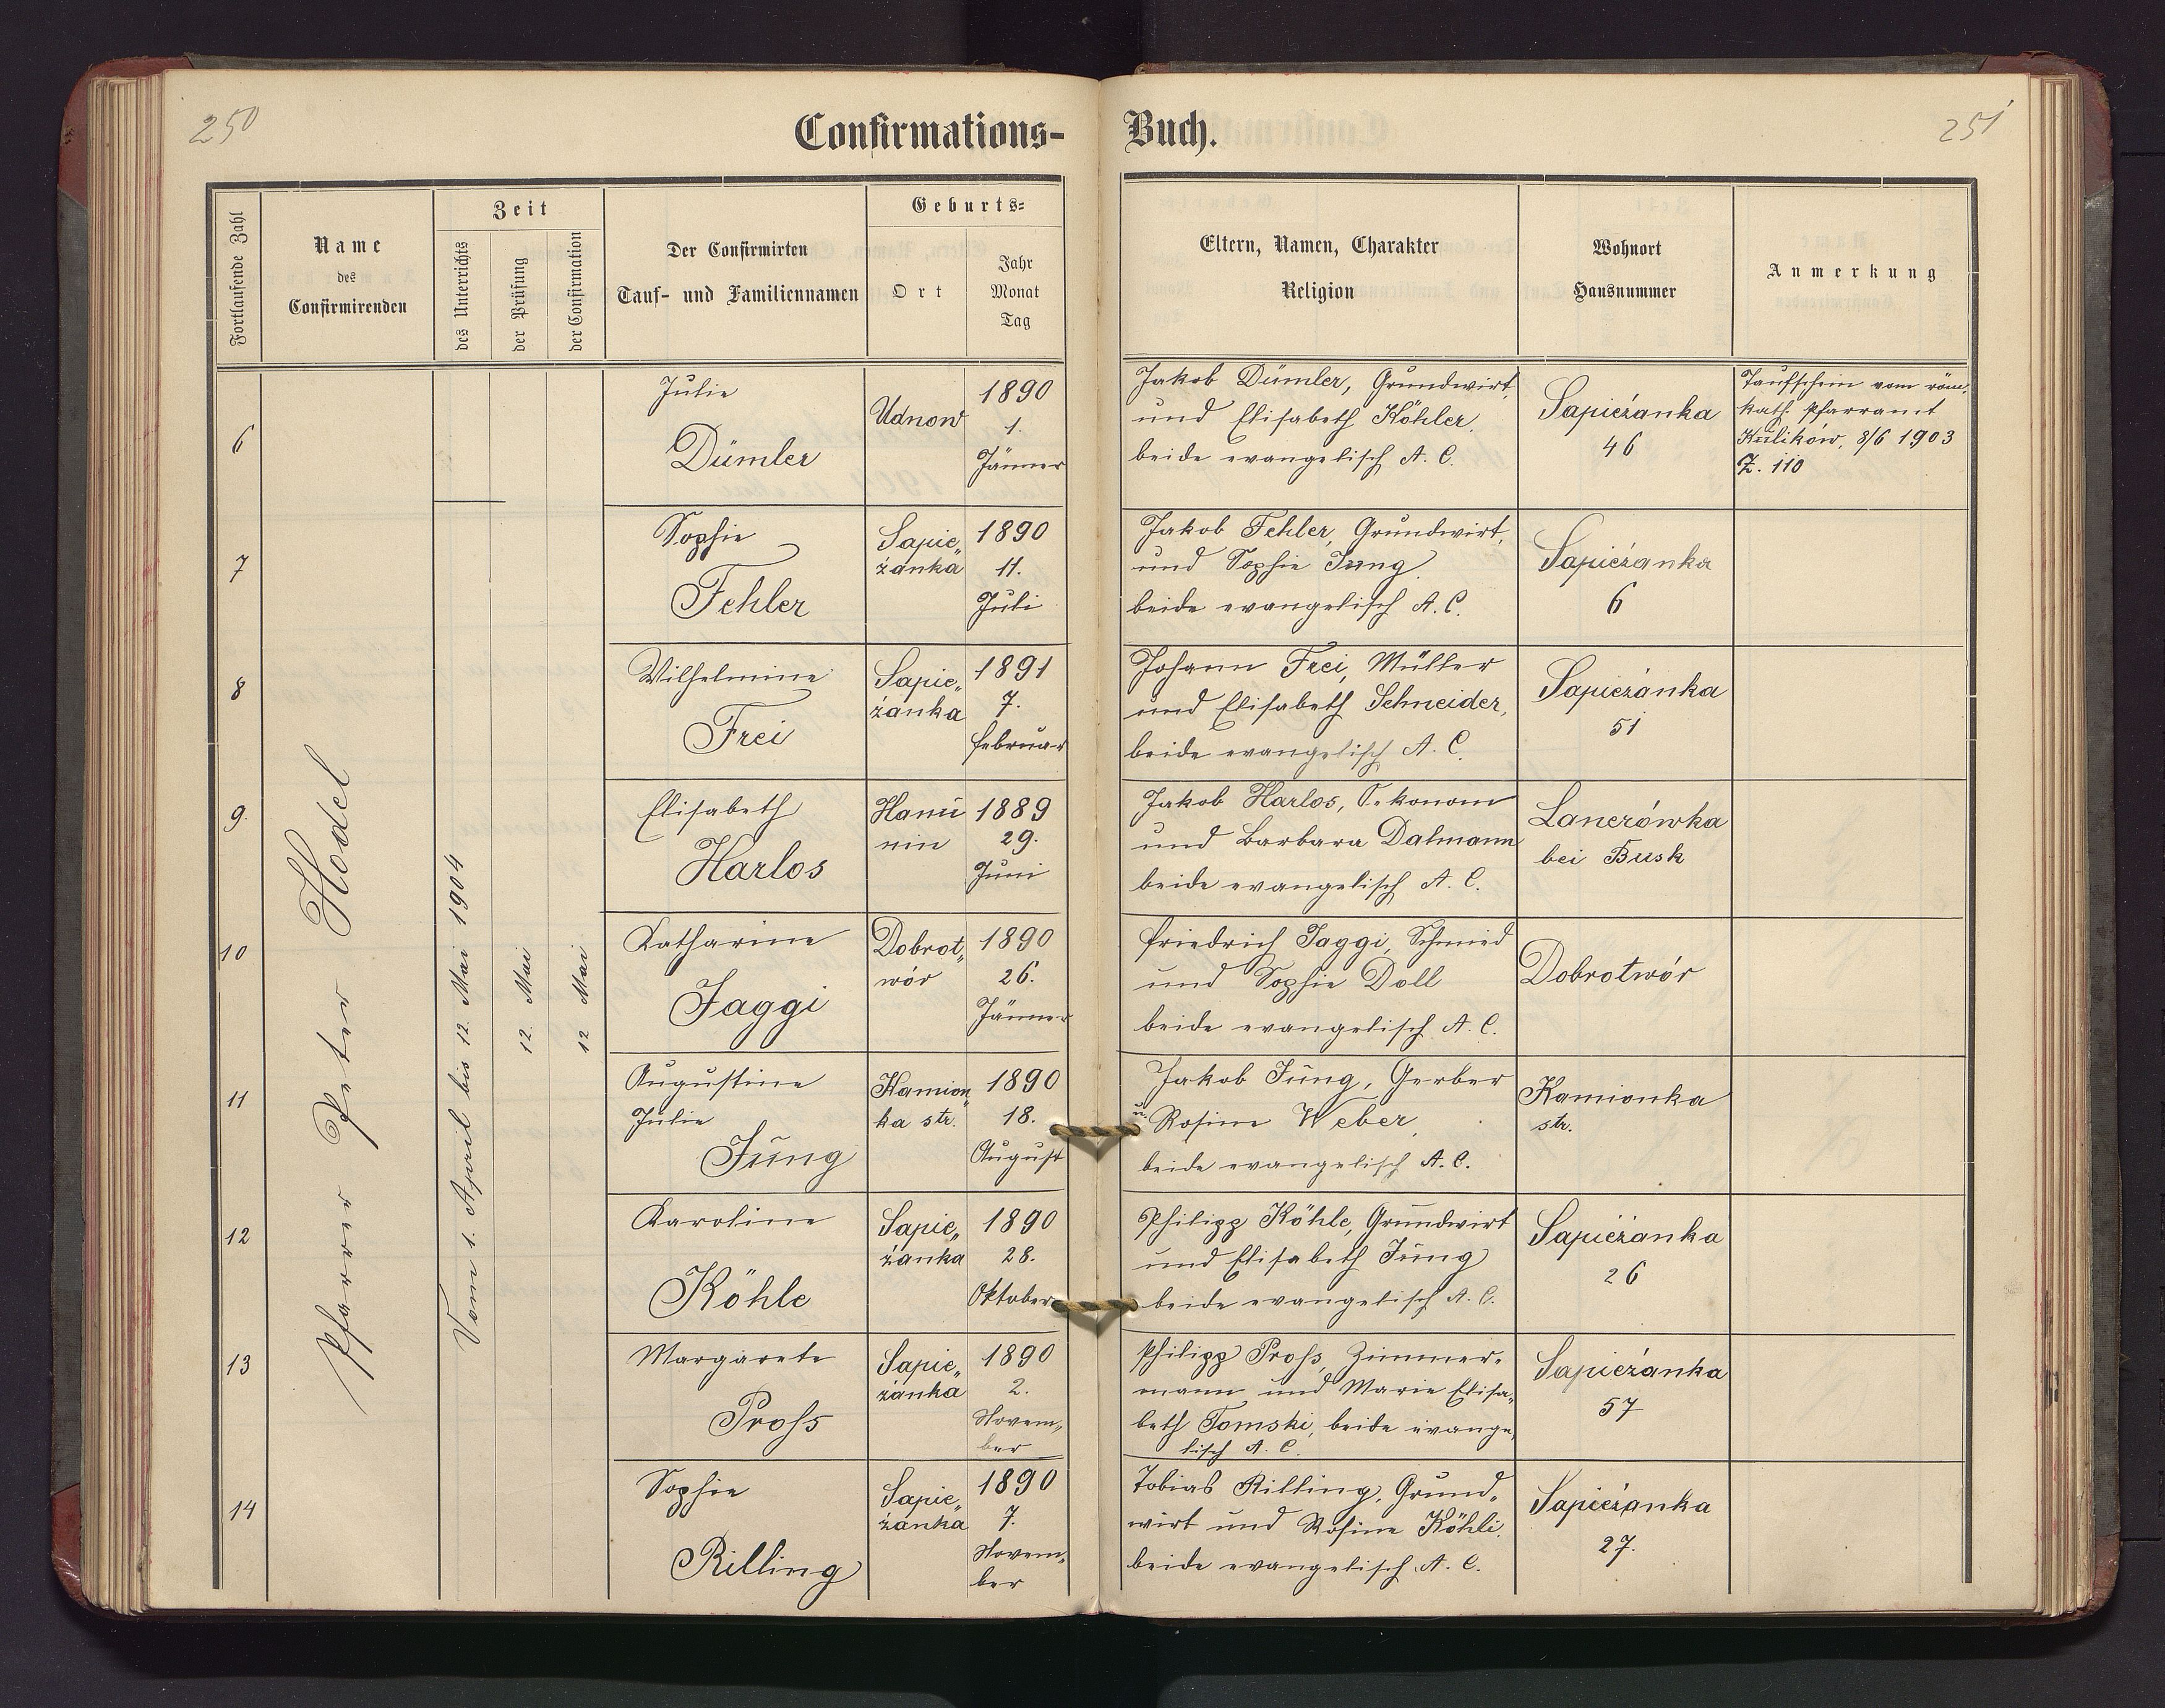 250
251
Confirmations-Buch.
Fortlaufende Zahl
Name
des
Confirmirenden
Zeit
des Unterrichts
der Prüfung
der Confirmation
Der Confirmirten
Tauf- und Familiennamen
Geburts-
Ort
Jahr
Monat
Tag
Eltern, Namen, Charakter
Religion
Wohnort
Hausnummer
Anmerkung
Pfarrer Peter Hodel
Vom 1. April bis 12. Mai 1904
12. Mai
12 Mai
6
Julie
Dümler
Udnow
1890
1.
Jänner
Jakob Dümler, Grundwirt,
und Elisabeth Köhler,
beide evangelisch A. C.
Sapieżanka
46
Taufschein vom röm.
kath. Pfarramt
Kulików, 8/6 1903
Z. 110
7
Sophie
Fehler
Sapie„
żanka
1890
11.
Juli
Jakob Fehler, Grundwirt,
und Sophie Jung
beide evangelisch A. C.
Sapieżanka
6
8
Wilhelmine
Frei
Sapie„
żanka
1891
7.
Februar
Johann Frei, Müller
und Elisabeth Schneider,
beide evangelisch A. C.
Sapieżanka
51
9.
Elisabeth
Harlos
Hanu
nin
1889
29.
Juni
Jakob Harlos, Oekonom
und Barbara Dalmann
beide evangelisch A. C.
Lanerówka
bei Busk
10
Katharine
Jaggi
Dobrot„
wór
1890
26.
Jänner
Friedrich Jaggi, Schmied
und Sophie Doll
beide evangelisch A. C.
Dobrotwór
11
Augustine
Julie
Jung
Kamion„
ka str.
1890
18.
August
Jakob Jung, Gerber
u. Rosine Weber,
beide evangelisch A. C.
Kamionka
str.
12
Karoline
Köhle
Sapie„
żanka
1890
28.
Oktober
Philipp Köhle, Grundwirt
und Elisabeth Jung
beide evangelisch A. C.
Sapieżanka
26
13
Margarete
Proß
Sapie„
żanka
1890
2.
Novem„
ber
Philipp Proß, Zimmer-
mann und Marie Elisa„
beth Tomski, beide evange„
lisch A. C.
Sapieżanka
57
14
Sophie
Rilling
Sapie„
żanka
1890
7.
Novem„
ber
Tobias Rilling, Grund„
wirt und Rosine Köhli,
beide evangelisch A. C.
Sapieżanka
27.